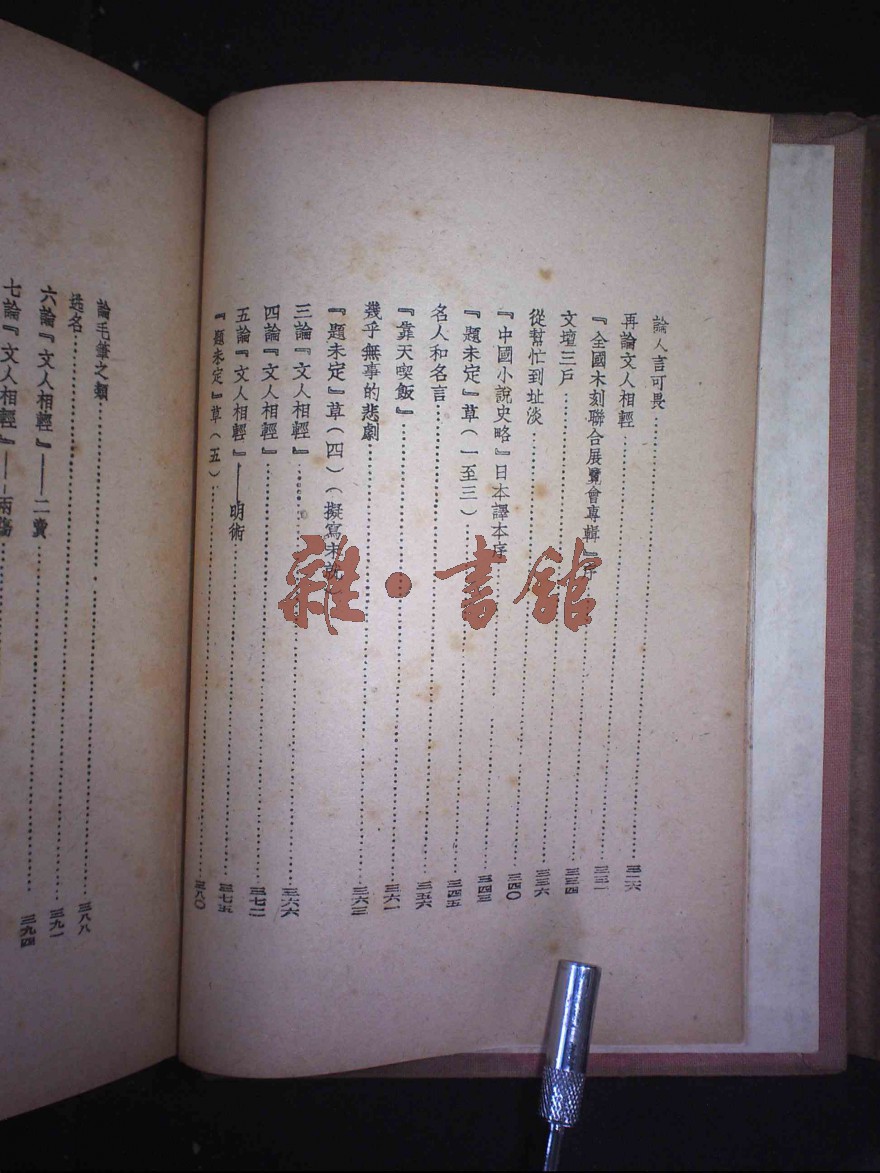 論人言可畏……三二六
再論文人相輕……三三一
『全國木刻聯合展覽會專輯』序……三三四
文壇三戶……三三六
從幫忙到址淡……三四〇
『中國小說史略』日本譯本序……三四三
『題未定』草（一至三）……三四五
名人和名言……三五六
『靠天喫飯』……三六一
幾乎無事的悲劇……三六三
『題未定』草（四）（擬寫未就）
三論『文人相輕』……三六六
四論『文人相輕』……三七二
五論『文人相輕』——明術……三七五
『題未定』草（五）……三八〇
論毛筆之類……三八八
逃名……三九一
六論『文人相輕』——二賣……三九四
七論『文人相輕』——兩傷……
雜·書館